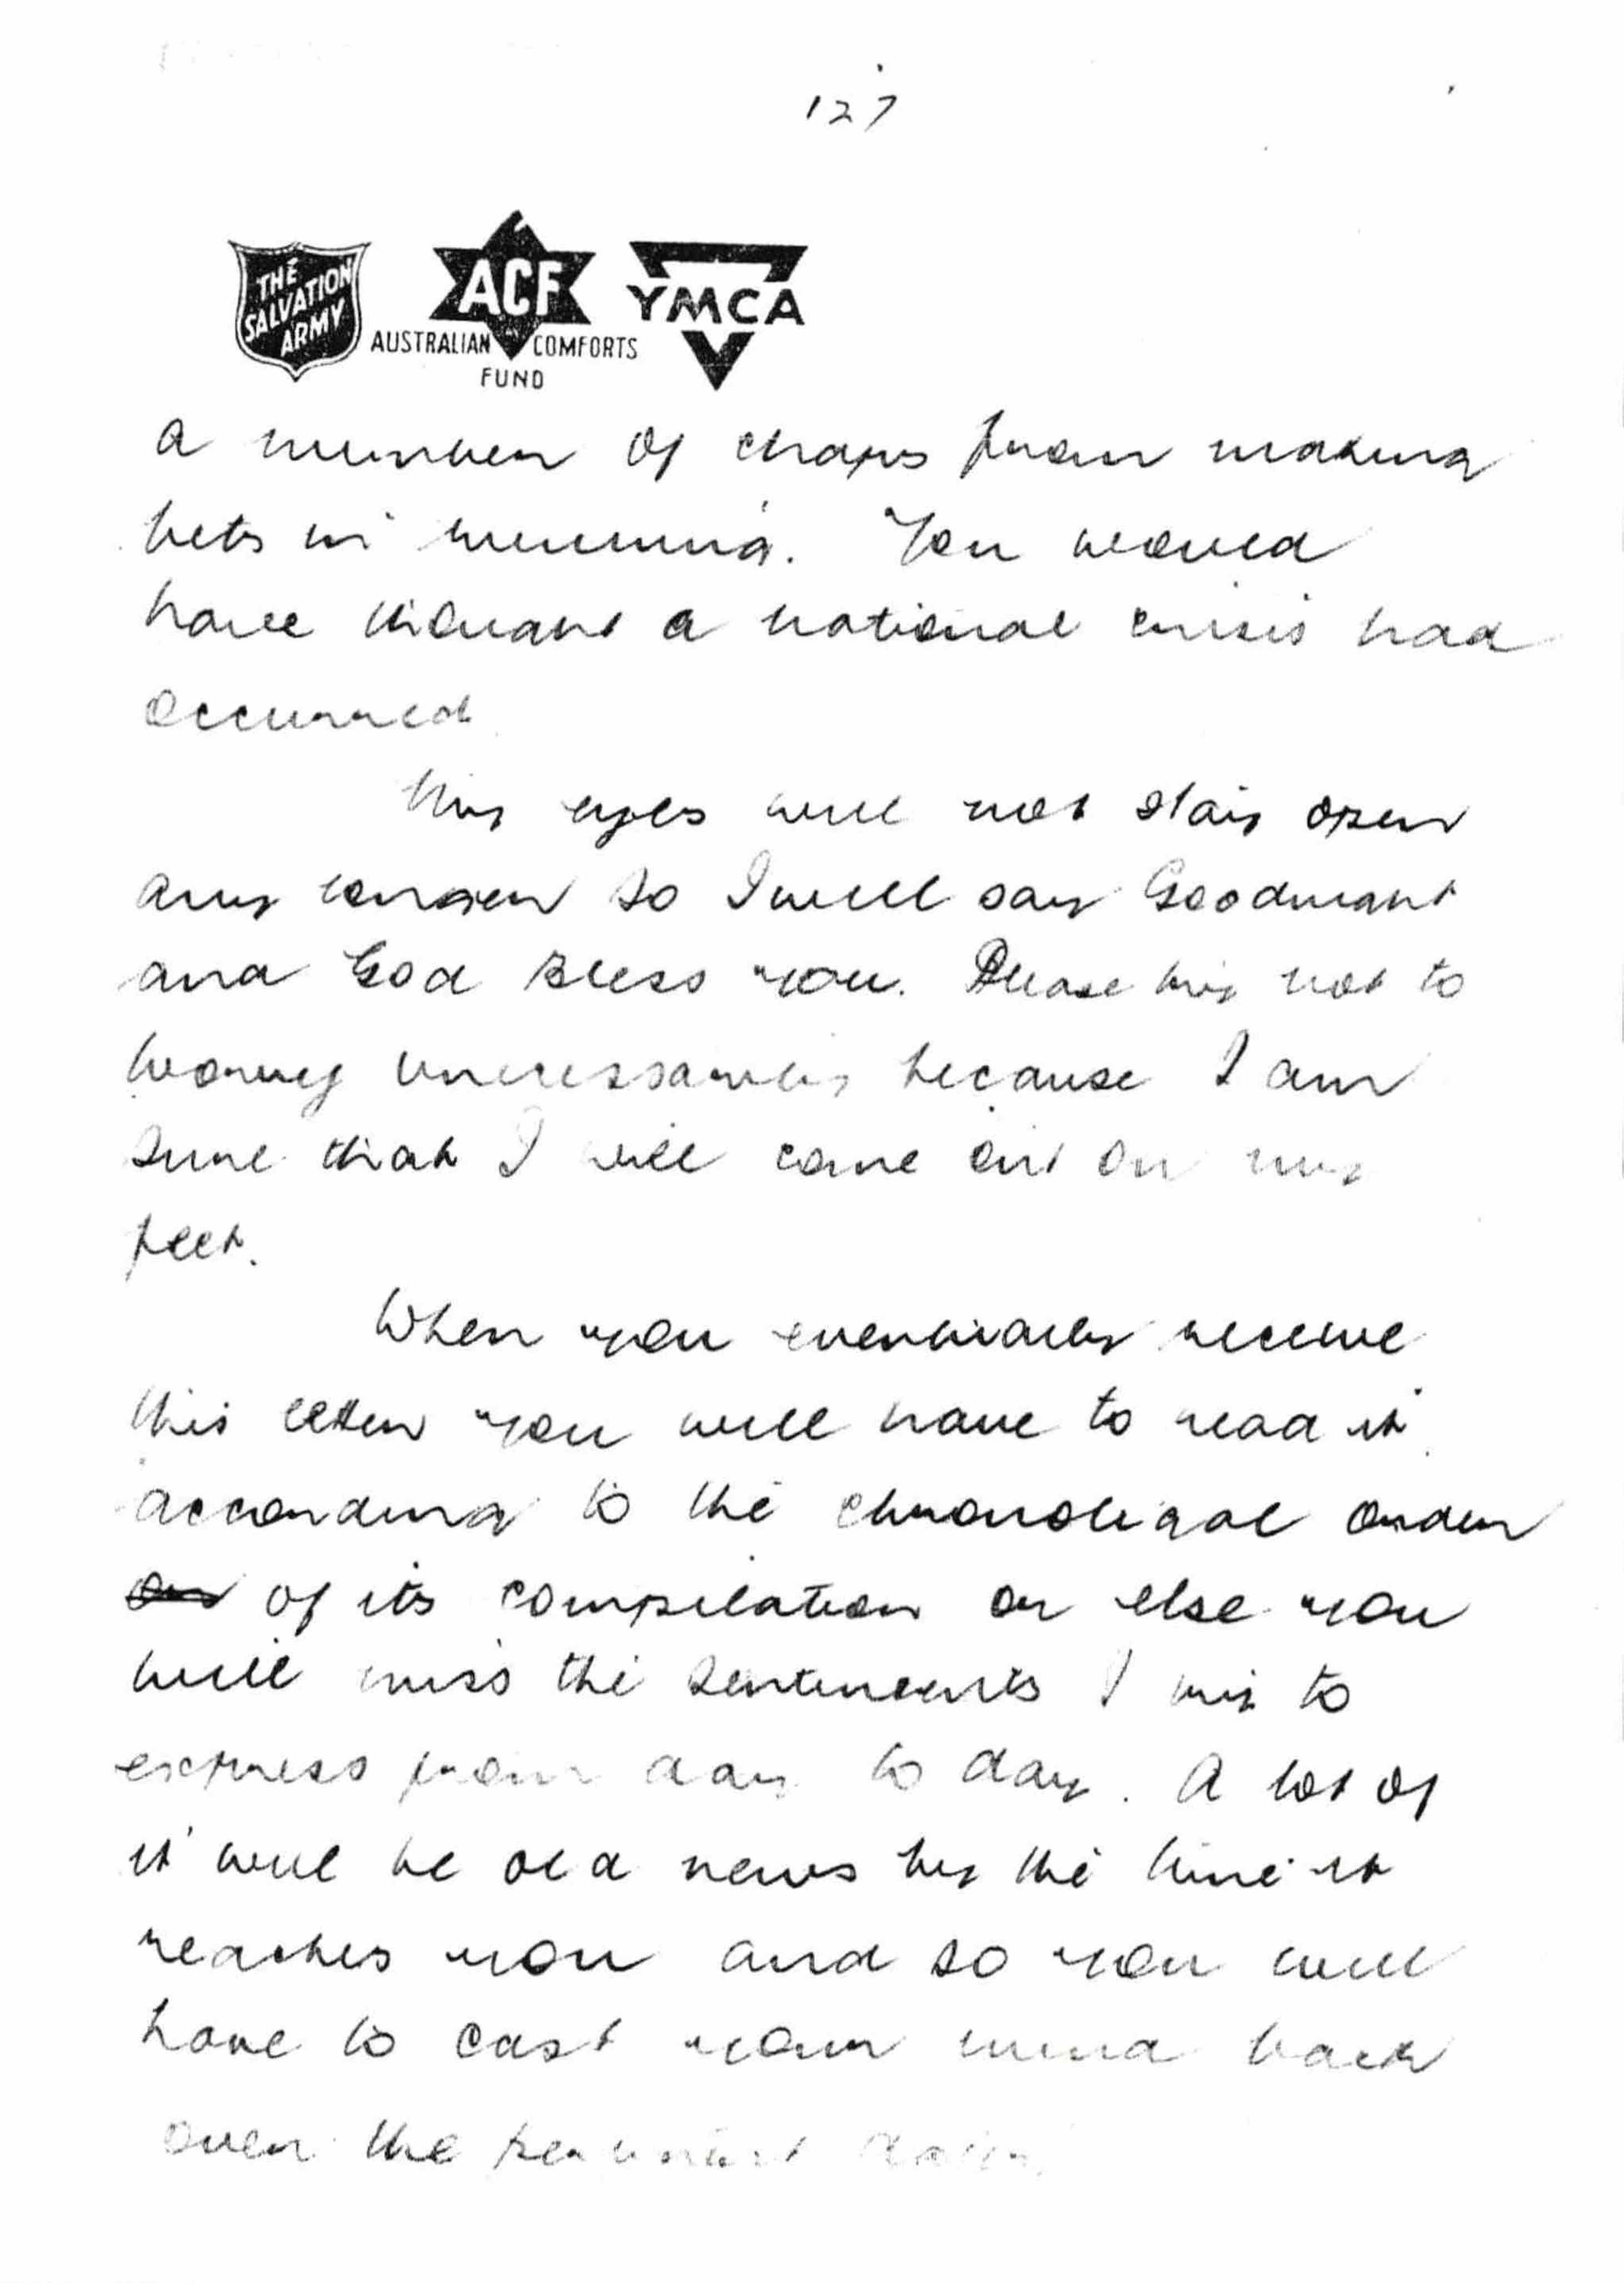 127
THE
SALVATION
ARMY
ACF
AUSTRALIAN COMFORTS
FUND
YMCA
a number of chaps from making
bets in running. You would
have thought a national crisis had
occurred
My eyes will not stay open
any longer so I will say Goodnight
and God Bless you. Please try not to
worry unecessarily because I am
sure that I will come out on my
feet.
When you eventually receive
this letter you will have to read it
according to the chronoligal order
of its compilation or else you
will miss the sentiments I try to
express from day to day. A lot of
it will be old news by the time it
reaches you and so you will
have to cast your mind back
over the